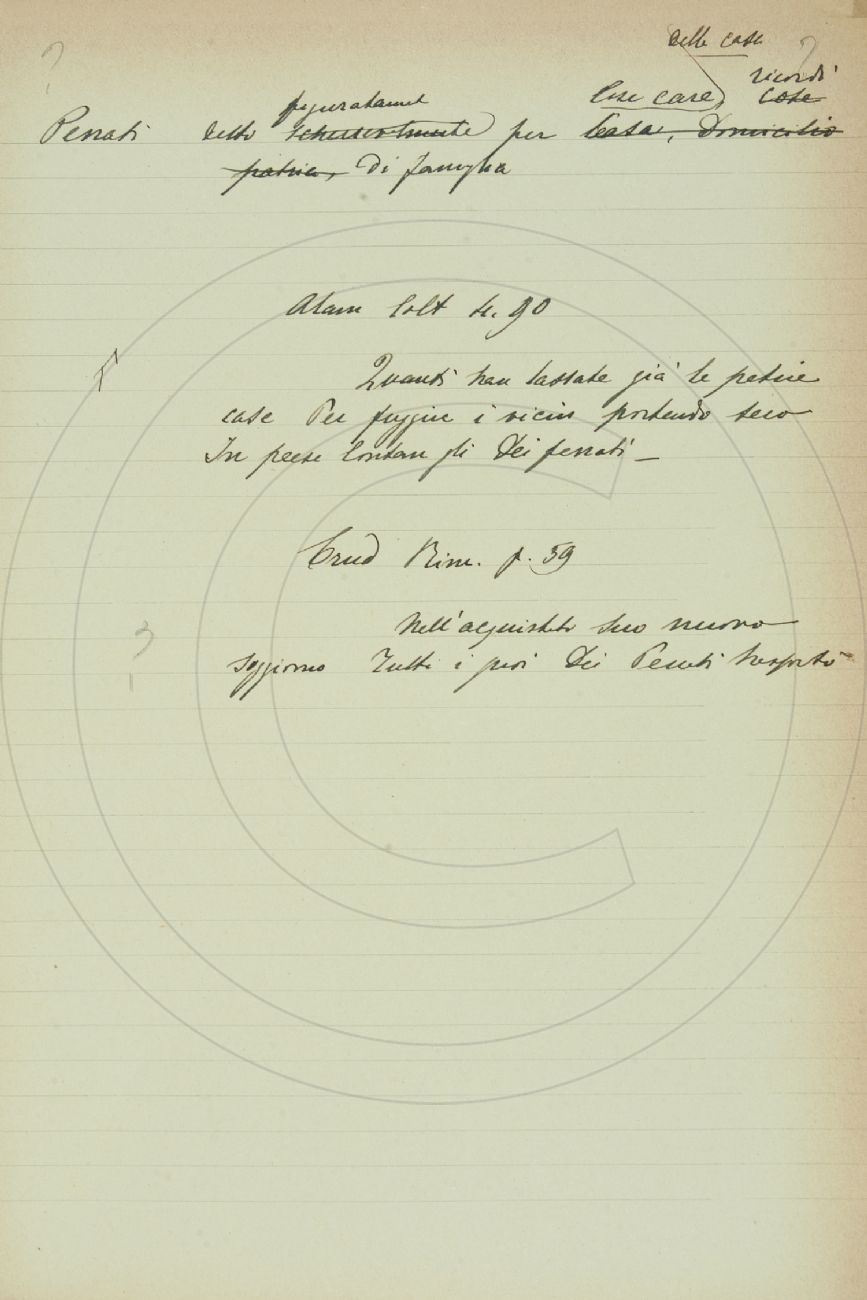 delle case
figuratamet Cose care, ricordi
Penati detto scherzevolmente per Casa, Domicilio cose
patria, di famiglia
Alam Colt st. 90
Quanti han lassate già le patrie
case Per fuggir i vicin portando seco
In paese lontan gli Dei penati —
Crud Rim. p. 59
Nell'acquistato suo nuovo
soggiorno Tutti i pensi Dei Penati trasportò